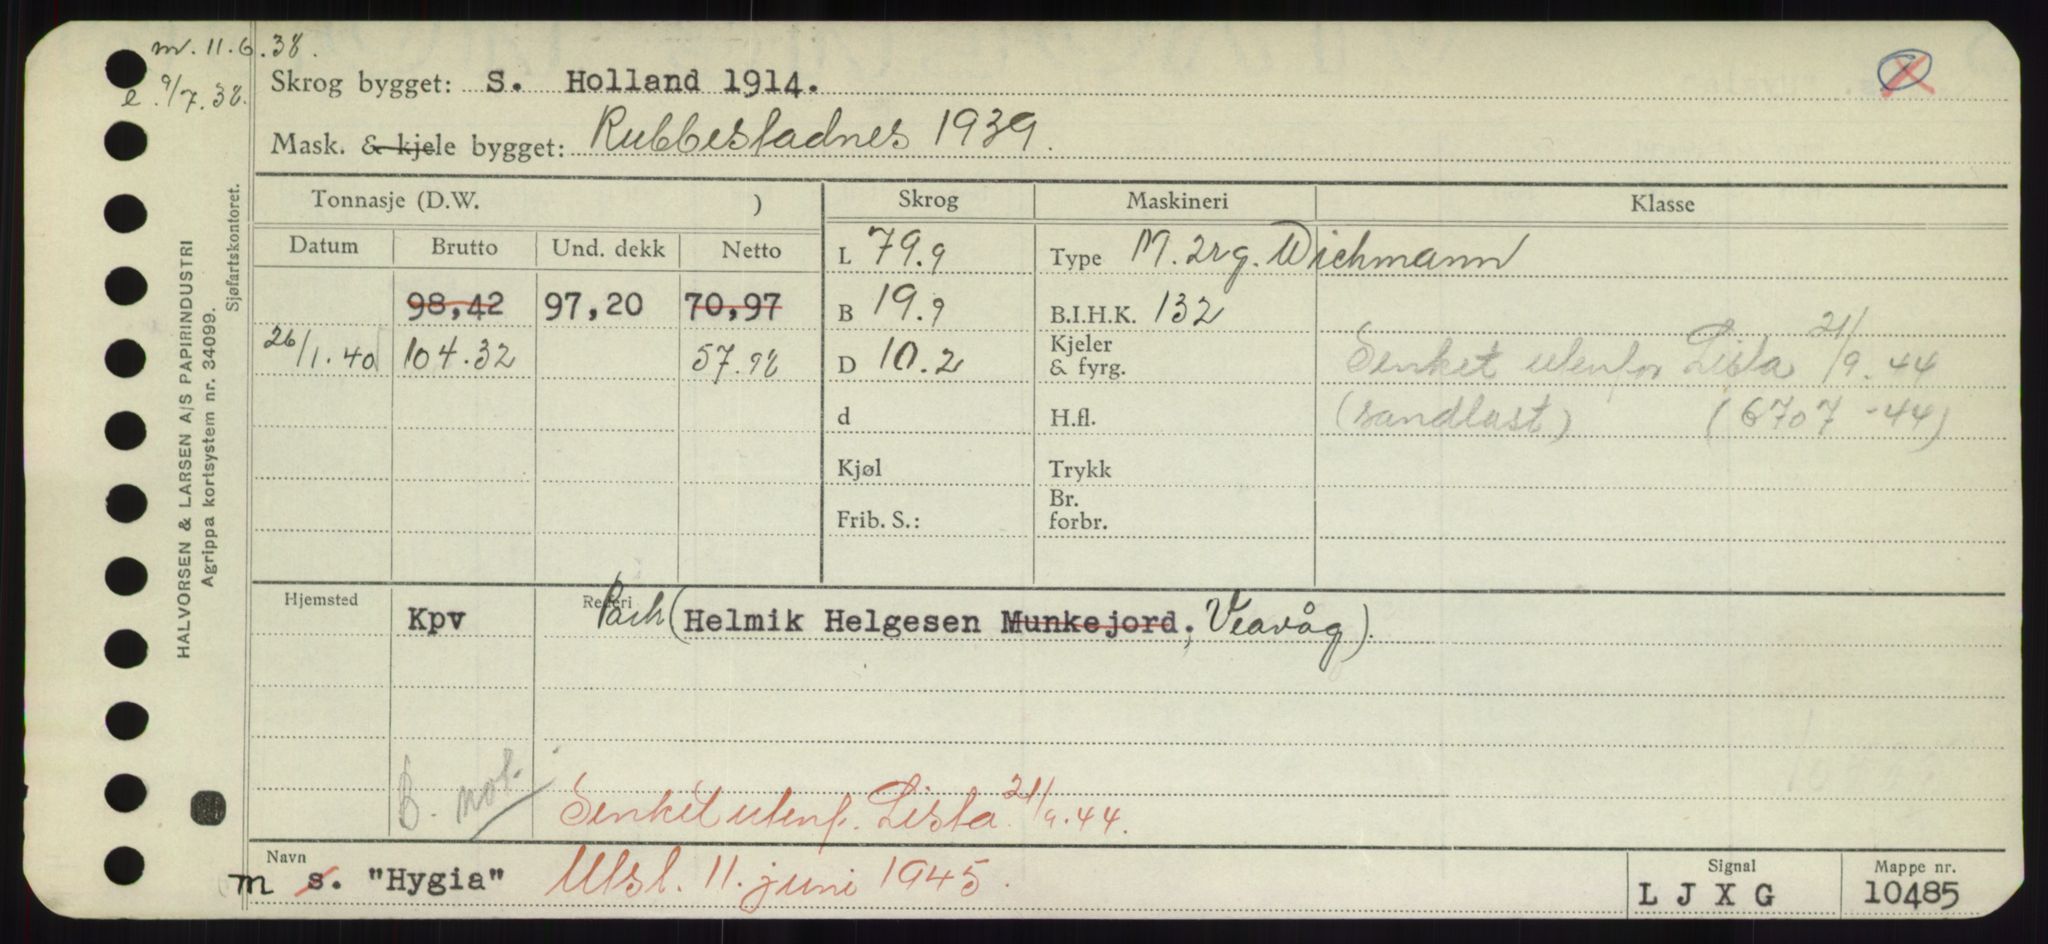 m. 11.6.38.
e. 9/7.38.
Skrog bygget: S. Holland 1914.
Mask. & kjele bygget: Rubbestadnes 1939.
Tonnasje (D.W. )
Skrog
Maskineri
Klasse
Datum
Brutto
Und. dekk
Netto
L 79.9
Type M. 2 Wichmann
98,42 97,20 70,97
B 19.9
B.I.H.K. 132
26/1.40 104.32 57.98
D 10.2
Kjeler
& fyrg.
Senket utenfor Lista 21/9.44
d
H.fl.
(sandlast) (6707-44)
Kjøl
Trykk
Frib. S.:
Br.
forbr.
Hjemsted
Kpv
Rederi
(Helmik Helgesen Munkejord, Veavåg).
B. not.
Senket utenf. Lista 21/9.44.
Navn
m s. "Hygia"
Utsl. 11. juni 1945.
Signal
L J X G
Mappe nr.
10485
HALVORSEN & LARSEN A/S PAPIRINDUSTRI
Agrippa kortsystem nr. 34099.
Sjøfartskontoret.